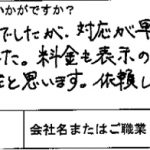 いかがですか？
でしたが、対応が早
た。料金も表示の
と思います。依頼し
会社名またはご職業